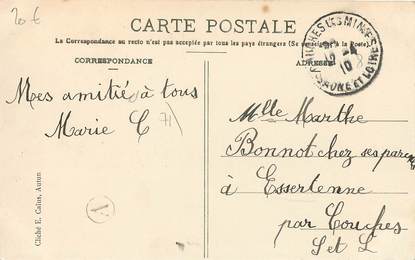 20 €
CARTE POSTALE
La Correspondance au recto n'est pas acceptée par tous les pays étrangers (Se renseigner à la Poste).
CORRESPONDANCE
ADRESSE
SAONE ET LOIRE
10
Mes amitié à tous
Marie C
71
Mlle Marthe
Bonnot chez ses parents
à Essertenne
par Couches
S et L
Cliché E. Calus, Autun